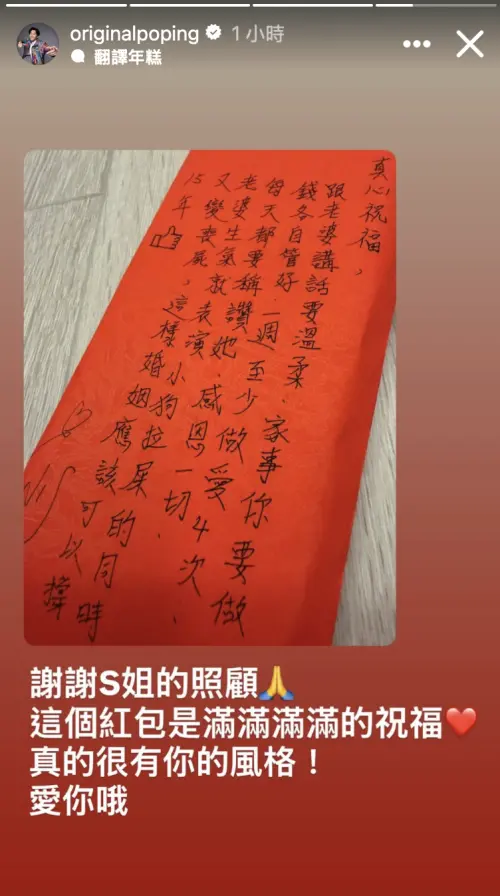 originalpoping 1 小時
翻譯年糕
真心祝福，
跟老婆講話要溫柔.家事你要做
錢各自管好.一週至少做愛4次.
每天都要稱讚她.感恩一切.
老婆生氣就表演小狗拉屎的同時
又變喪屍，這樣婚姻應該可以撐
15年
謝謝S姐的照顧🙏
這個紅包是滿滿滿滿的祝福❤️
真的很有你的風格！
愛你哦